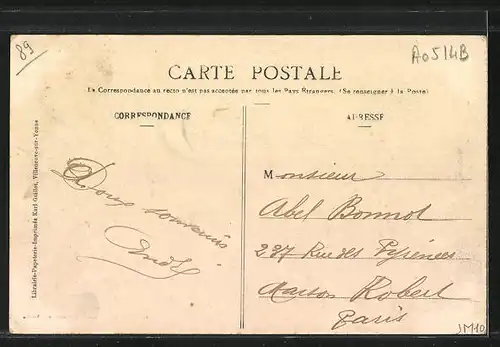 89
A0514B
CARTE POSTALE
La Correspondance au recto n'est pas acceptée par tous les Pays Étrangers. (Se renseigner à la Poste)
CORRESPONDANCE
ADRESSE
Librairie-Papeterie-Imprimerie Karl Guillot, Villeneuve-sur-Yonne
Doux souvenirs
André
Monsieur
Abel Bonnot
237 Rue des Pyrénées
Maison Robert
Paris
JM10